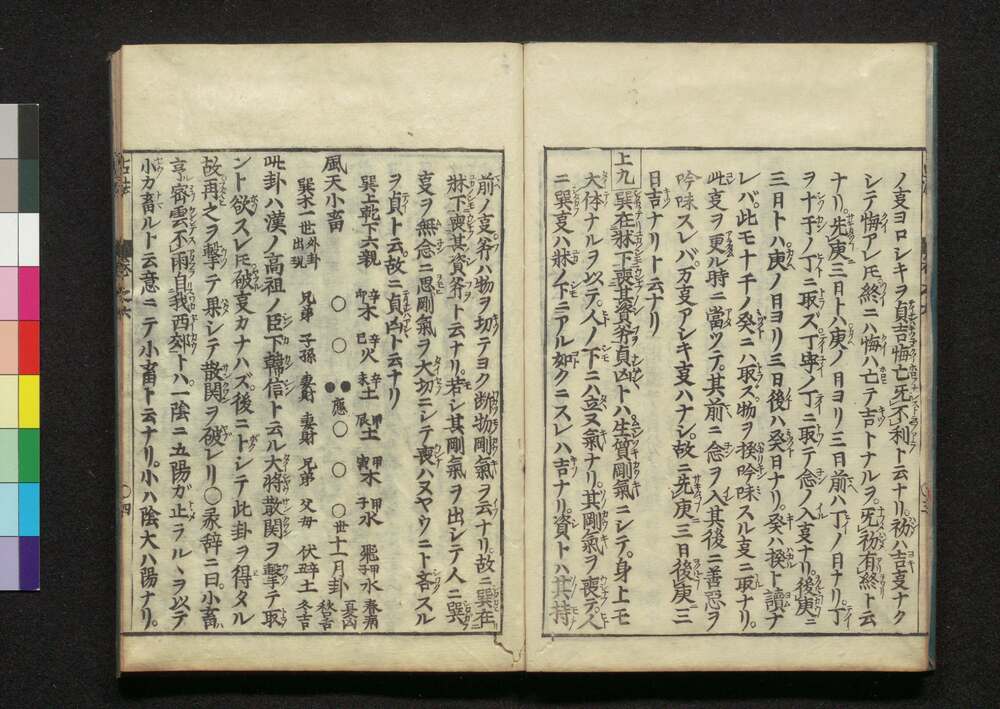 ノ亥ヨロシキヲ貞吉悔亡无不利ト云ナリ。初ハ吉亥ナク
シテ悔アレ𪜈終ニハ悔ハ亡テ吉トナルヲ。无初有終ト云
ナリ。先庚三日トハ庚ノ日ヨリ三日前ハ丁ノ日ナリ。丁
ヲ十干ノ丁ニ取ズ。丁寧ノ丁ニ取テ念ノ入亥ナリ。後庚
三日トハ庚ノ日ヨリ三日後ハ癸日ナリ。癸ハ揆ト讀ナ
レバ。此モ十干ノ癸ニハ取ズ物ヲ揆吟味スル亥ニ取ナリ。
此亥ヲ更ル時ニ當ツテ。其前ニ念ヲ入其後ニ善惡ヲ
吟味スレバ。万亥アシキ亥ハナシ。故ニ先庚三日後庚三
日吉ナリト云ナリ
上九 巽在牀下喪其資斧貞凶トハ生質剛氣ニシテ。身上モ
大体ナルヲ以テ。人ノ下ニハ立ヌ氣ナリ。其剛氣ヲ喪テ。人
ニ巽亥ハ牀ノ下ニアル如クニスレハ吉ナリ。資トハ其持
前ノ亥斧ハ物ヲ切テヨク断物剛氣ヲ云ナリ。故ニ巽在
牀下喪其資斧ト云ナリ。若シ其剛氣ヲ出シテ人ニ巽
亥ヲ無念ニ思剛氣ヲ大切ニシテ喪ハヌヤウニト吝スル
ヲ貞ト云故ニ貞凶ト云ナリ
巽上乾下六親 辛卯木 辛巳火 辛未土 甲辰土 甲寅木 甲子水 飛甲子水 春病
風天小畜 ○ ○ ●● 應 ○ ○ ○ 世十一月卦 夏凶 秋吉
巽木一世 外卦出現 兄弟 子孫 妻財 妻財 兄弟 父母 伏辛丑土 冬吉
此卦ハ漢ノ高祖ノ臣下韓信ト云ル大將散関ヲ撃テ取
ント欲スレ𪜈破亥カナハズ。後ニトシテ此卦ヲ得タル
故再之ヲ撃テ果シテ散関ヲ破レリ○彖辞ニ曰。小畜ハ
亨密雲不雨自我西郊トハ。一陰ニ五陽ガ止ラルヽヲ以テ
小カ畜ルト云意ニテ小畜ト云ナリ。小ハ陰大ハ陽ナリ。